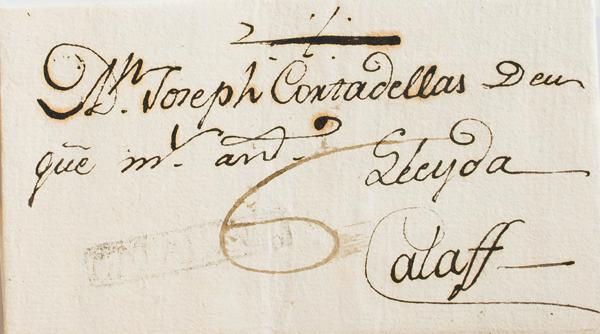 Mn. Joseph Cortadellas Deu
que ms. and.s Lleyda
6
Calaff